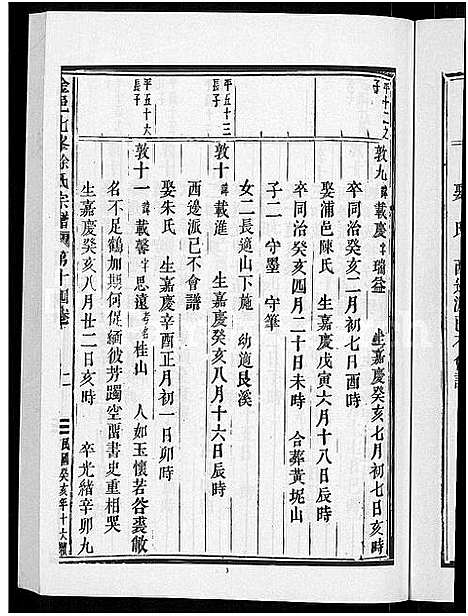 平十二之
子
敦九 諱載慶 字瑞益 生嘉慶癸亥七月初七日亥時
卒同治癸亥二月初七日酉時
娶浦邑陳氏 生嘉慶戊寅六月十八日辰時
卒同治癸亥四月二十日未時 合葬黃坭山
子二 守墨 守筆
女二長適山下施 幼適艮溪
平五十三
長子
敦十 諱載滙 生嘉慶癸亥八月十六日辰時
西邊派已不會譜
娶朱氏 生嘉慶辛酉正月初一日卯時
平五十大
長子
敦十一 諱載馨 字思遠 考名桂山 人如玉懷若谷裘敝
名不足鶴加期何促緬彼芳躅空留書史重相哭
生嘉慶癸亥八月廿二日亥時 卒光緒辛卯九
徐氏宗譜 第十四
民國癸亥年十大
娶 氏 西邊派已不會譜